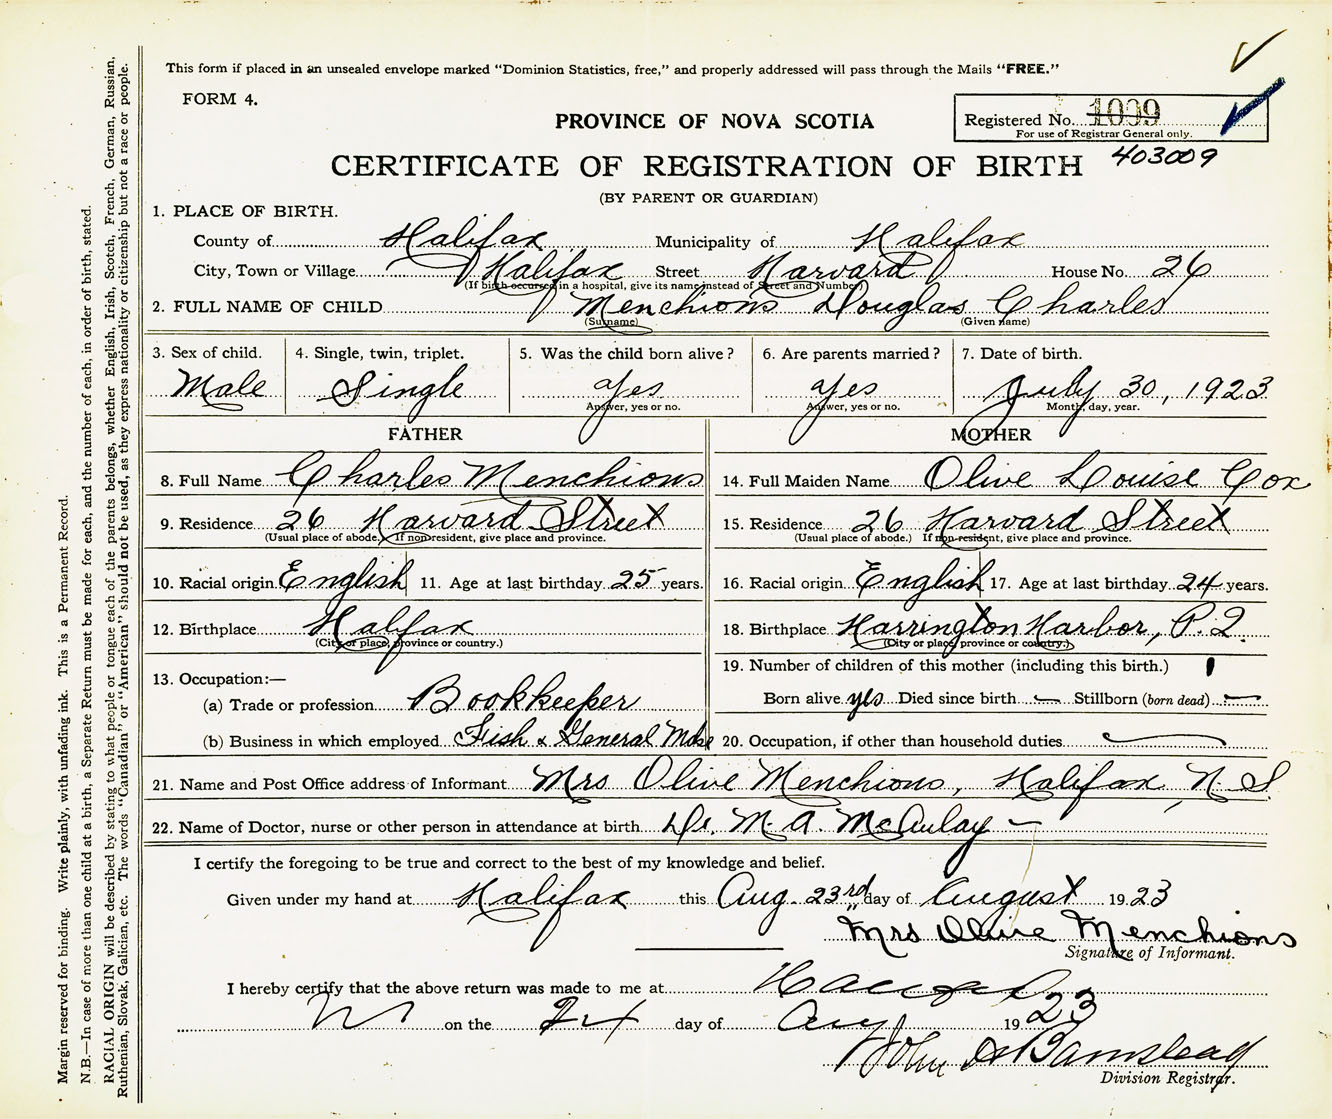 This form if placed in an unsealed envelope marked "Dominion Statistics, free," and properly addressed will pass through the Mails "FREE."
FORM 4.
PROVINCE OF NOVA SCOTIA
Registered No. 1099
For use of Registrar General only.
403009
CERTIFICATE OF REGISTRATION OF BIRTH
(BY PARENT OR GUARDIAN)
1. PLACE OF BIRTH.
County of Halifax Municipality of Halifax
City, Town or Village Halifax Street Harvard House No. 26
(If birth occurred in a hospital, give its name instead of Street and Number)
2. FULL NAME OF CHILD Menchions Douglas Charles
(Surname) (Given name)
3. Sex of child. 4. Single, twin, triplet. 5. Was the child born alive? 6. Are parents married? 7. Date of birth.
Male Single Yes Yes July 30, 1923
Answer, yes or no. Answer, yes or no. Month, day, year.
FATHER MOTHER
8. Full Name Charles Menchions 14. Full Maiden Name Olive Louise Cox
9. Residence 26 Harvard Street 15. Residence 26 Harvard Street
(Usual place of abode.) If nonresident, give place and province. (Usual place of abode.) If non-resident, give place and province.
10. Racial origin English 11. Age at last birthday 25 years. 16. Racial origin English 17. Age at last birthday 24 years.
12. Birthplace Halifax 18. Birthplace Harrington Harbor, P.Q.
(City or place, province or country.) (City or place, province or country.)
13. Occupation:— 19. Number of children of this mother (including this birth.) 1
(a) Trade or profession Bookkeeper Born alive yes Died since birth — Stillborn (born dead) —
(b) Business in which employed Fish & General Mdse 20. Occupation, if other than household duties —
21. Name and Post Office address of Informant Mrs Olive Menchions, Halifax, N.S.
22. Name of Doctor, nurse or other person in attendance at birth Dr. M. A. McAulay —
I certify the foregoing to be true and correct to the best of my knowledge and belief.
Given under my hand at Halifax this Aug. 23rd day of August 1923
Mrs Olive Menchions
Signature of Informant.
I hereby certify that the above return was made to me at Halifax
on the 24 day of Aug 1923
John A Barnstead
Division Registrar.
Margin reserved for binding. Write plainly, with unfading ink. This is a Permanent Record.
N.B.—In case of more than one child at a birth, a Separate Return must be made for each, and the number of each, in order of birth, stated.
RACIAL ORIGIN will be described by stating to what people or tongue each of the parents belongs, whether English, Irish, Scotch, French, German, Russian,
Ruthenian, Slovak, Galician, etc. The words "Canadian" or "American" should not be used, as they express nationality or citizenship but not a race or people.